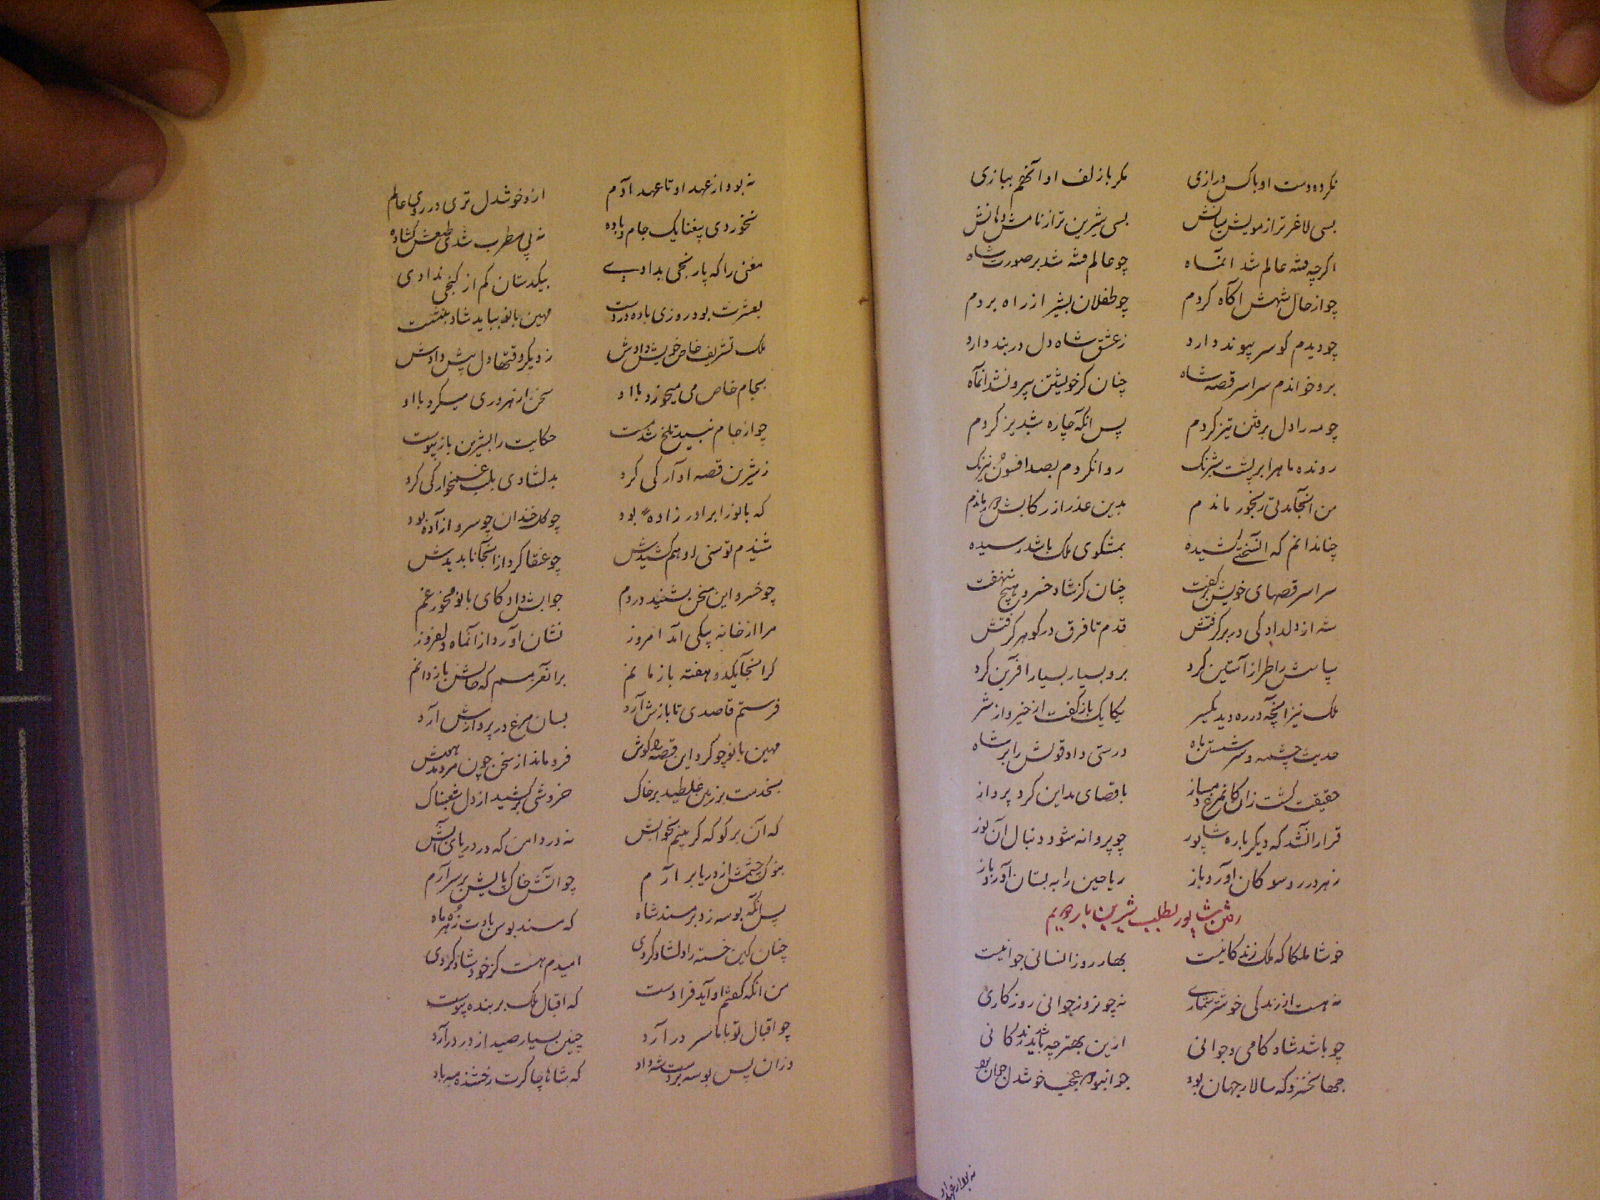 نکرده دست او باکس درازی مگر با زلف او آنهم ببازی
بسی لاغرتر از مویش میانش بسی شیرین تر از نامش دهانش
اگرچه فتنه عالم شد آنماه چو عالم فتنه شد بر صورت شاه
چو از حال شهش آگاه کردم چو طفلان بیشتر از راه بردم
چو دیدم کو سر پیوند دارد ز عشق شاه دل در بند دارد
برو خواندم سراسر قصه شاه چنان کز خویشتن بیرون شد آنماه
چو مه را دل برفتن تیز کردم پس آنگه چاره شبدیز کردم
رونده ماه را بر پشت شبرنگ روان کردم بصد افسون و نیرنگ
من اینجا مدتی رنجور ماندم بدین عذر از رکابش دور ماندم
چنان دانم که آن سختی کشیده بمشکوی ملک باشد رسیده
سراسر قصهای خویش برگفت چنان کز شاه خسرو هیچ ننهفت
شه از دلدادگی در بر گرفتش قدم تا فرق در گوهر گرفتش
سپاسش را طراز آستین کرد برو بسیار بسیار آفرین کرد
ملک نیز آنچه در ره دید یکسر یکایک بازگفت از خیر و از شر
حدیث چشمه و سر شستن ماه درستی داد قولش را بر شاه
حقیقت گشتشان کان مرغ دمساز باقصای مداین کرد پرواز
قرار آن شد که دیگر باره شاپور چو پروانه شود دنبال آن نور
زمرد را سوی کان آورد باز ریاحین را به بستان آورد باز
رفتن شاپور بطلب شیرین بار دویم
خوشا ملکا که ملک زندگانیست بهار روز انسانی جوانیست
نه هست از زندگی خوشتر شماری نه چو نوروز جوانی روزگاری
چو باشد شادکامی و جوانی ازین بهتر چه باشد زندگانی
جهان خسرو که سالار جهان بود جوان بود و عجب خوشدل جوان بود
نه بود از عهد او
نه بود از عهد او تا عهد آدم ازو خوشدل تری در روی عالم
نخوردی بی غنا یک جام باده نه بی مطرب شدی طبعش گشاده
مغنی را که پارنجی بدادی بیک دستان کم از گنجی ندادی
بعشرت بود روزی باده در دست مهین بانو بیامد شاد بنشست
ملک تشریف خاص خویش دادش ز دیگر وقتها دل بیش دادش
بجام خاص می میخورد با او سخن از هر دری میکرد با او
چو از جام نبید تلخ شد مست حکایت را بشیرین باز پیوست
ز شیرین قصه آوارگی کرد بدلشادی بلب غمخوارگی کرد
که بانو را برادر زاده بود چو گل خندان چو سرو آزاده بود
شنیدم توسنی ادهم کشیدش چو عنقا کرد از اینجا ناپدیدش
چو خسرو این سخن بشنید در دم جوابش داد کای بانو مخور غم
مرا از خانه پیکی آمد امروز نشان آورد از آنماه دلفروز
گر اینجا یکدو هفته باز مانم بران عزمم که جایش باز دانم
فرستم قاصدی تا بازش آرد بسان مرغ در پروازش آرد
مهین بانو چو کرد این قصه را گوش فرو ماند از سخن چون مردم
بخدمت بر زمین غلطید بر خاک خروشی برکشید از دل شغبناک
که آن بر کو که گر بینم بخوابش نه در دامن که در دریای آتش
بنوک چشمش از دریا برآرم چو آتش خاک بالین بر سر آرم
پس آنگه بوسه زد بر مسند شاه که مسند بوس بادت زهره و ماه
چنان کاین خسته را دلشاد کردی امیدم هست کز خود شاد کردی
من آنگه گفتم او آید فرا دست که اقبال ملک بر بنده پیوست
چو اقبال تو با ما سر در آرد چنین بسیار صید از در درآرد
وزان پس بوسه بر دست شه داد که شاها چاکرت رخشنده مه باد